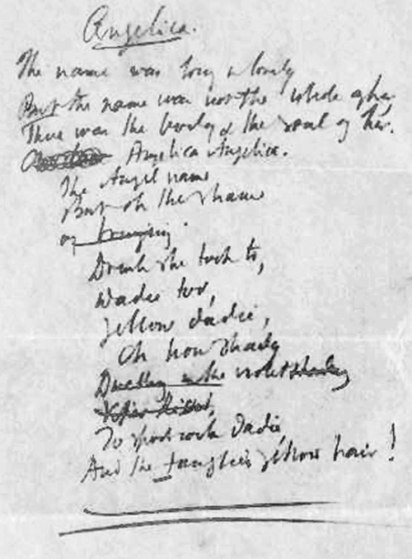 Angelica.
The name was long & lovely
But the name was not the whole of her,
There was the body & the soul of her.
Angelica Angelica.
The Angel name
But oh the shame
of
Drink she took to,
too,
Yellow dadie,
Oh how shady
Dwelling in the
To dadie
And the yellow hair!